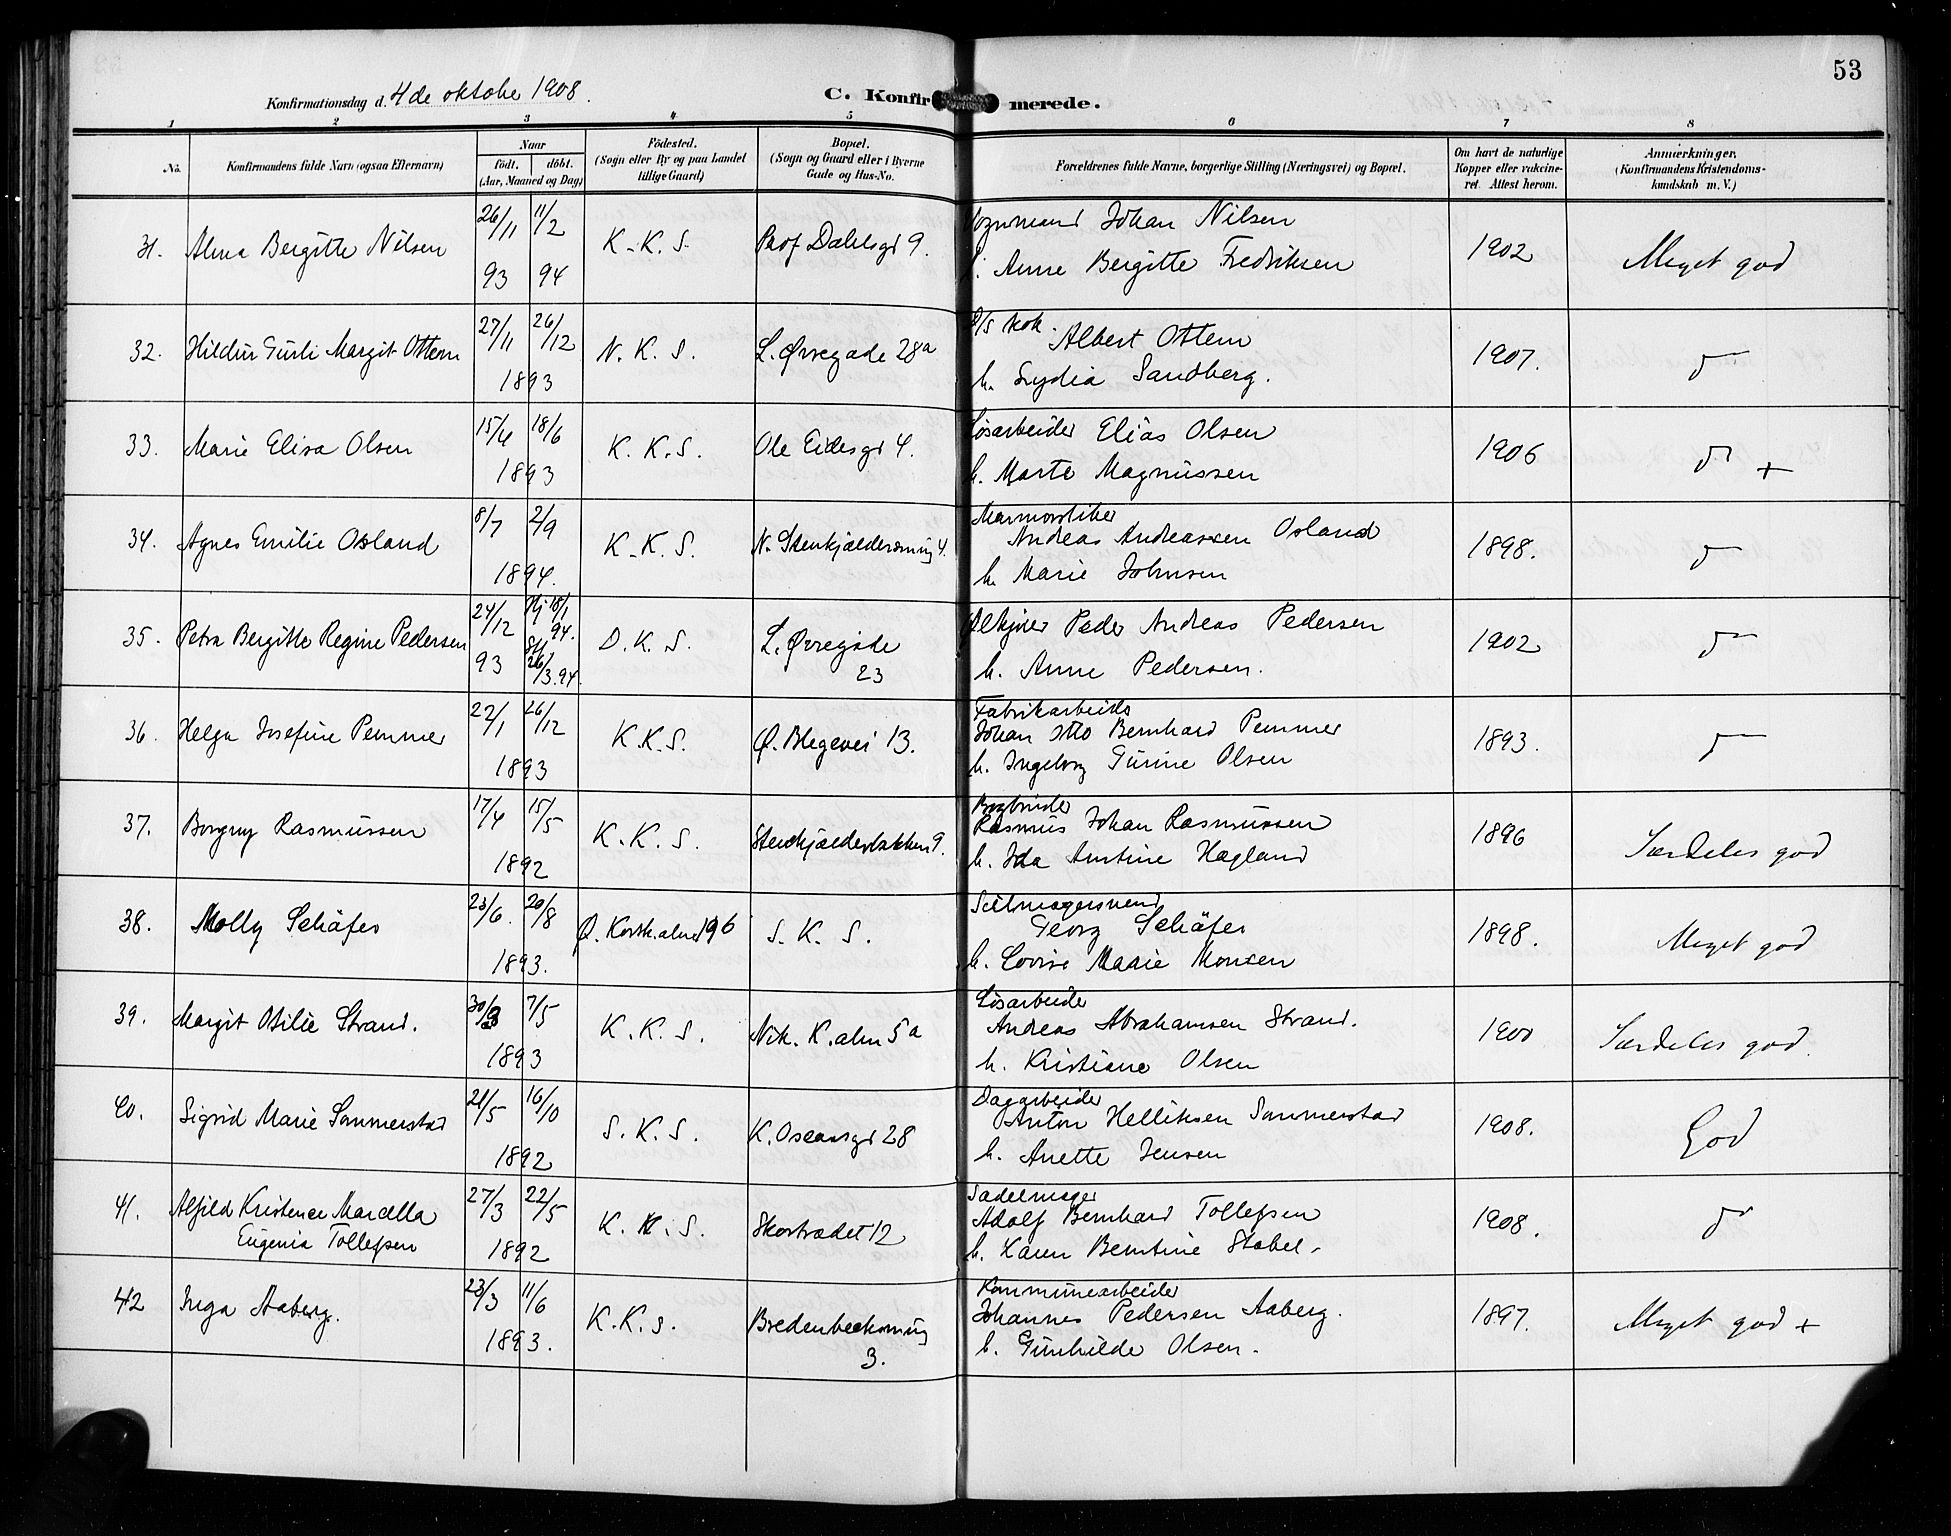 53
Konfirmationsdag d. 4de oktobe 1908.
C. Konfirmerede.
1 2 3 4 5 6 7 8
No.
Konfirmandens fulde Navn (ogsaa Efternavn)
Naar
født. døbt.
(Aar, Maaned og Dag)
Fødested.
(Sogn eller By og paa Landet
tillige Gaard)
Bopæl.
(Sogn og Gaard eller i Byerne
Gade og Hus-No.
Forældrenes fulde Navne, borgerlige Stilling (Næringsvei) og Bopæl.
Om havt de naturlige
Kopper eller vakcine-
ret. Attest herom.
Anmærkninger.
(Konfirmandens Kristendoms-
kundskab m. V.)
31. Alma Bergitte Nilsen 26/11 93 11/2 94 K. K. S. Prof Dahlsgd 9. Vognmand Johan Nilsen
h. Anne Bergitte Fredriksen 1902 Meget god
32. Hildur Gurli Margit Ottem 27/11 26/12 1893 N. K. S. L. Øvregade 28a D/S kok. Albert Ottem
h. Lydia Sandberg. 1907. do
33. Marie Elisa Olsen 15/4 18/6 1893 K. K. S. Ole Eidesgd 4. Løsarbeider Elias Olsen
h. Marte Magnussen 1906 do +
34. Agnes Emilie Osland 8/7 2/9 1894. K. K. S. N. Stenkjeldersmug 4. Andreas Andreassen Osland
h. Marie Johnsen 1898. do
35. Petra Bergitte Regine Pedersen 24/12 93 Hj 18/1 94. 26/3.94. D. K. S. L. Øvregade
23 Peder Andreas Pedersen
h. Anne Pedersen. 1902 do
36. Helga Josefine Pemmer 22/1 26/12 1893 K. K. S. Ø. Blegevei 13. Fabrikarbeide
Johan Otto Bernhard Pemmer
h. Ingeborg Gurine Olsen 1893. do
37. Borgny Rasmussen 17/4 15/5 1892 K. K. S. Stenkjælderbakken 9. Bogbinder
Rasmus Johan Rasmussen
h. Ida Hagland 1896 Særdeles god
38. Molly Schäfer 23/6. 20/8 1893. Ø. Korsk.alm 196 S. K. S. Seilmagersvend
Georg Schäfer
h. Lovise Marie Monsen 1898. Meget god
39. Margit Otilie Strand. 30/3 7/5 1893 K. K. S. Nik. K. alm 5a Løsarbeider
Andreas Abrahamsen Strand.
h. Kristiane Olsen 1900 Særdeles god.
40. Sigrid Marie Sammerstad 21/5 16/10 1892 S. K. S. K. Oscarsgd 28 Dagarbeider
Anton Helliksen Sammerstad
h. Anette Jensen 1908. God
41. Alfild Kristence Marcella
Eugenia Tollefsen 27/3 22/5 1892 K. K. S. Skostrædet 12 Sadelmager
Adolf Bernhard Tollefsen
h. Karen Berntine Stabel. 1908. do
42 Inga Aaberg. 23/3 11/6 1893. K. K. S. Bredenbecksmug
3. Kommunearbeider
Johannes Pedersen Aaberg.
h. Gunhilde Olsen. 1897. Meget god +